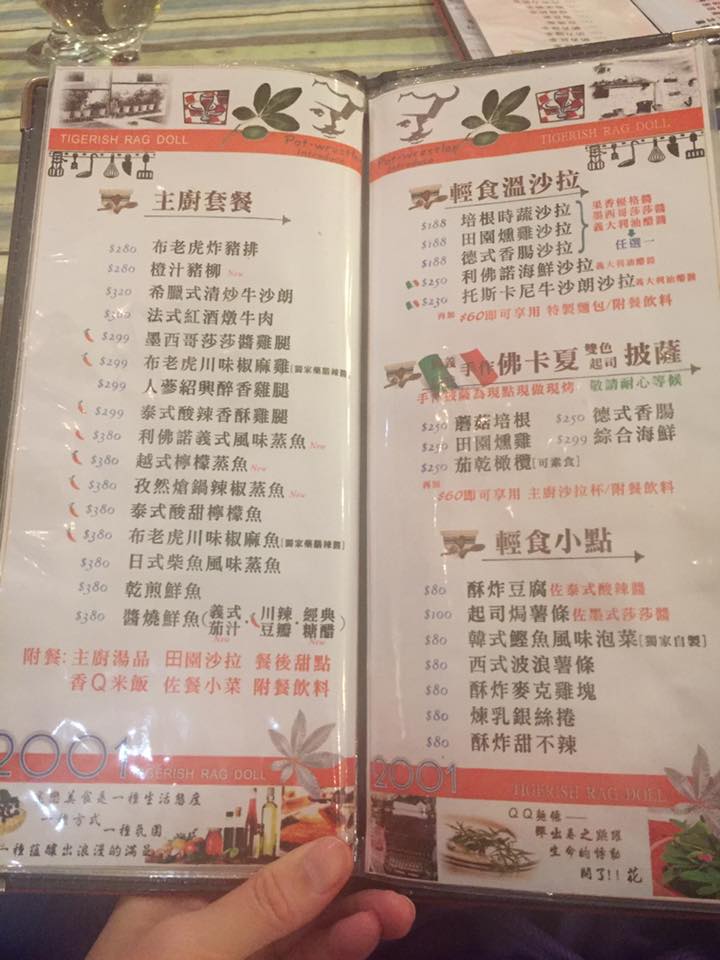 TIGERISH RAG DOLL
Pot-wrestler
主廚套餐
$280 布老虎炸豬排
$280 橙汁豬柳 New
$320 希臘式清炒牛沙朗
$360 法式紅酒燉牛肉
$299 墨西哥莎莎醬雞腿
$299 布老虎川味椒麻雞[獨家藥膳辣醬]
$299 人蔘紹興醉香雞腿
$299 泰式酸辣香酥雞腿
$380 利佛諾義式風味蒸魚 New
$380 越式檸檬蒸魚 New
$380 孜然熗鍋辣椒蒸魚 New
$380 泰式酸甜檸檬魚
$380 布老虎川味椒麻魚[獨家藥膳辣醬]
$380 日式柴魚風味蒸魚
$380 乾煎鮮魚
$380 醬燒鮮魚(義式茄汁New・川辣豆瓣・經典糖醋New)
附餐:主廚湯品 田園沙拉 餐後甜點
香Q米飯 佐餐小菜 附餐飲料
2001
TIGERISH RAG DOLL
美食是一種生活態度
一種方式
一種氛圍
一種蘊釀出浪漫的滿足
TIGERISH RAG DOLL
Pot-wrestler
輕食溫沙拉
$188 培根時蔬沙拉
$188 田園燻雞沙拉
$188 德式香腸沙拉
果香優格醬
墨西哥莎莎醬
義大利油醋醬
任選一
$250 利佛諾海鮮沙拉義大利油醋醬
$230 托斯卡尼牛沙朗沙拉義大利油醋醬
再加 $60即可享用 特製麵包/附餐飲料
義 手作佛卡夏 雙色起司 披薩
手作披薩為現點現做現烤 敬請耐心等候
$250 蘑菇培根 $250 德式香腸
$250 田園燻雞 $299 綜合海鮮
$250 茄乾橄欖[可素食]
再加 $60即可享用 主廚沙拉杯/附餐飲料
輕食小點
$80 酥炸豆腐佐泰式酸辣醬
$100 起司焗薯條佐墨式莎莎醬
$80 韓式鰹魚風味泡菜[獨家自製]
$80 西式波浪薯條
$80 酥炸麥克雞塊
$80 煉乳銀絲捲
$80 酥炸甜不辣
2001
TIGERISH RAG DOLL
QQ麵條——
彈出卷之跳躍
生命的悸動
開了!! 花